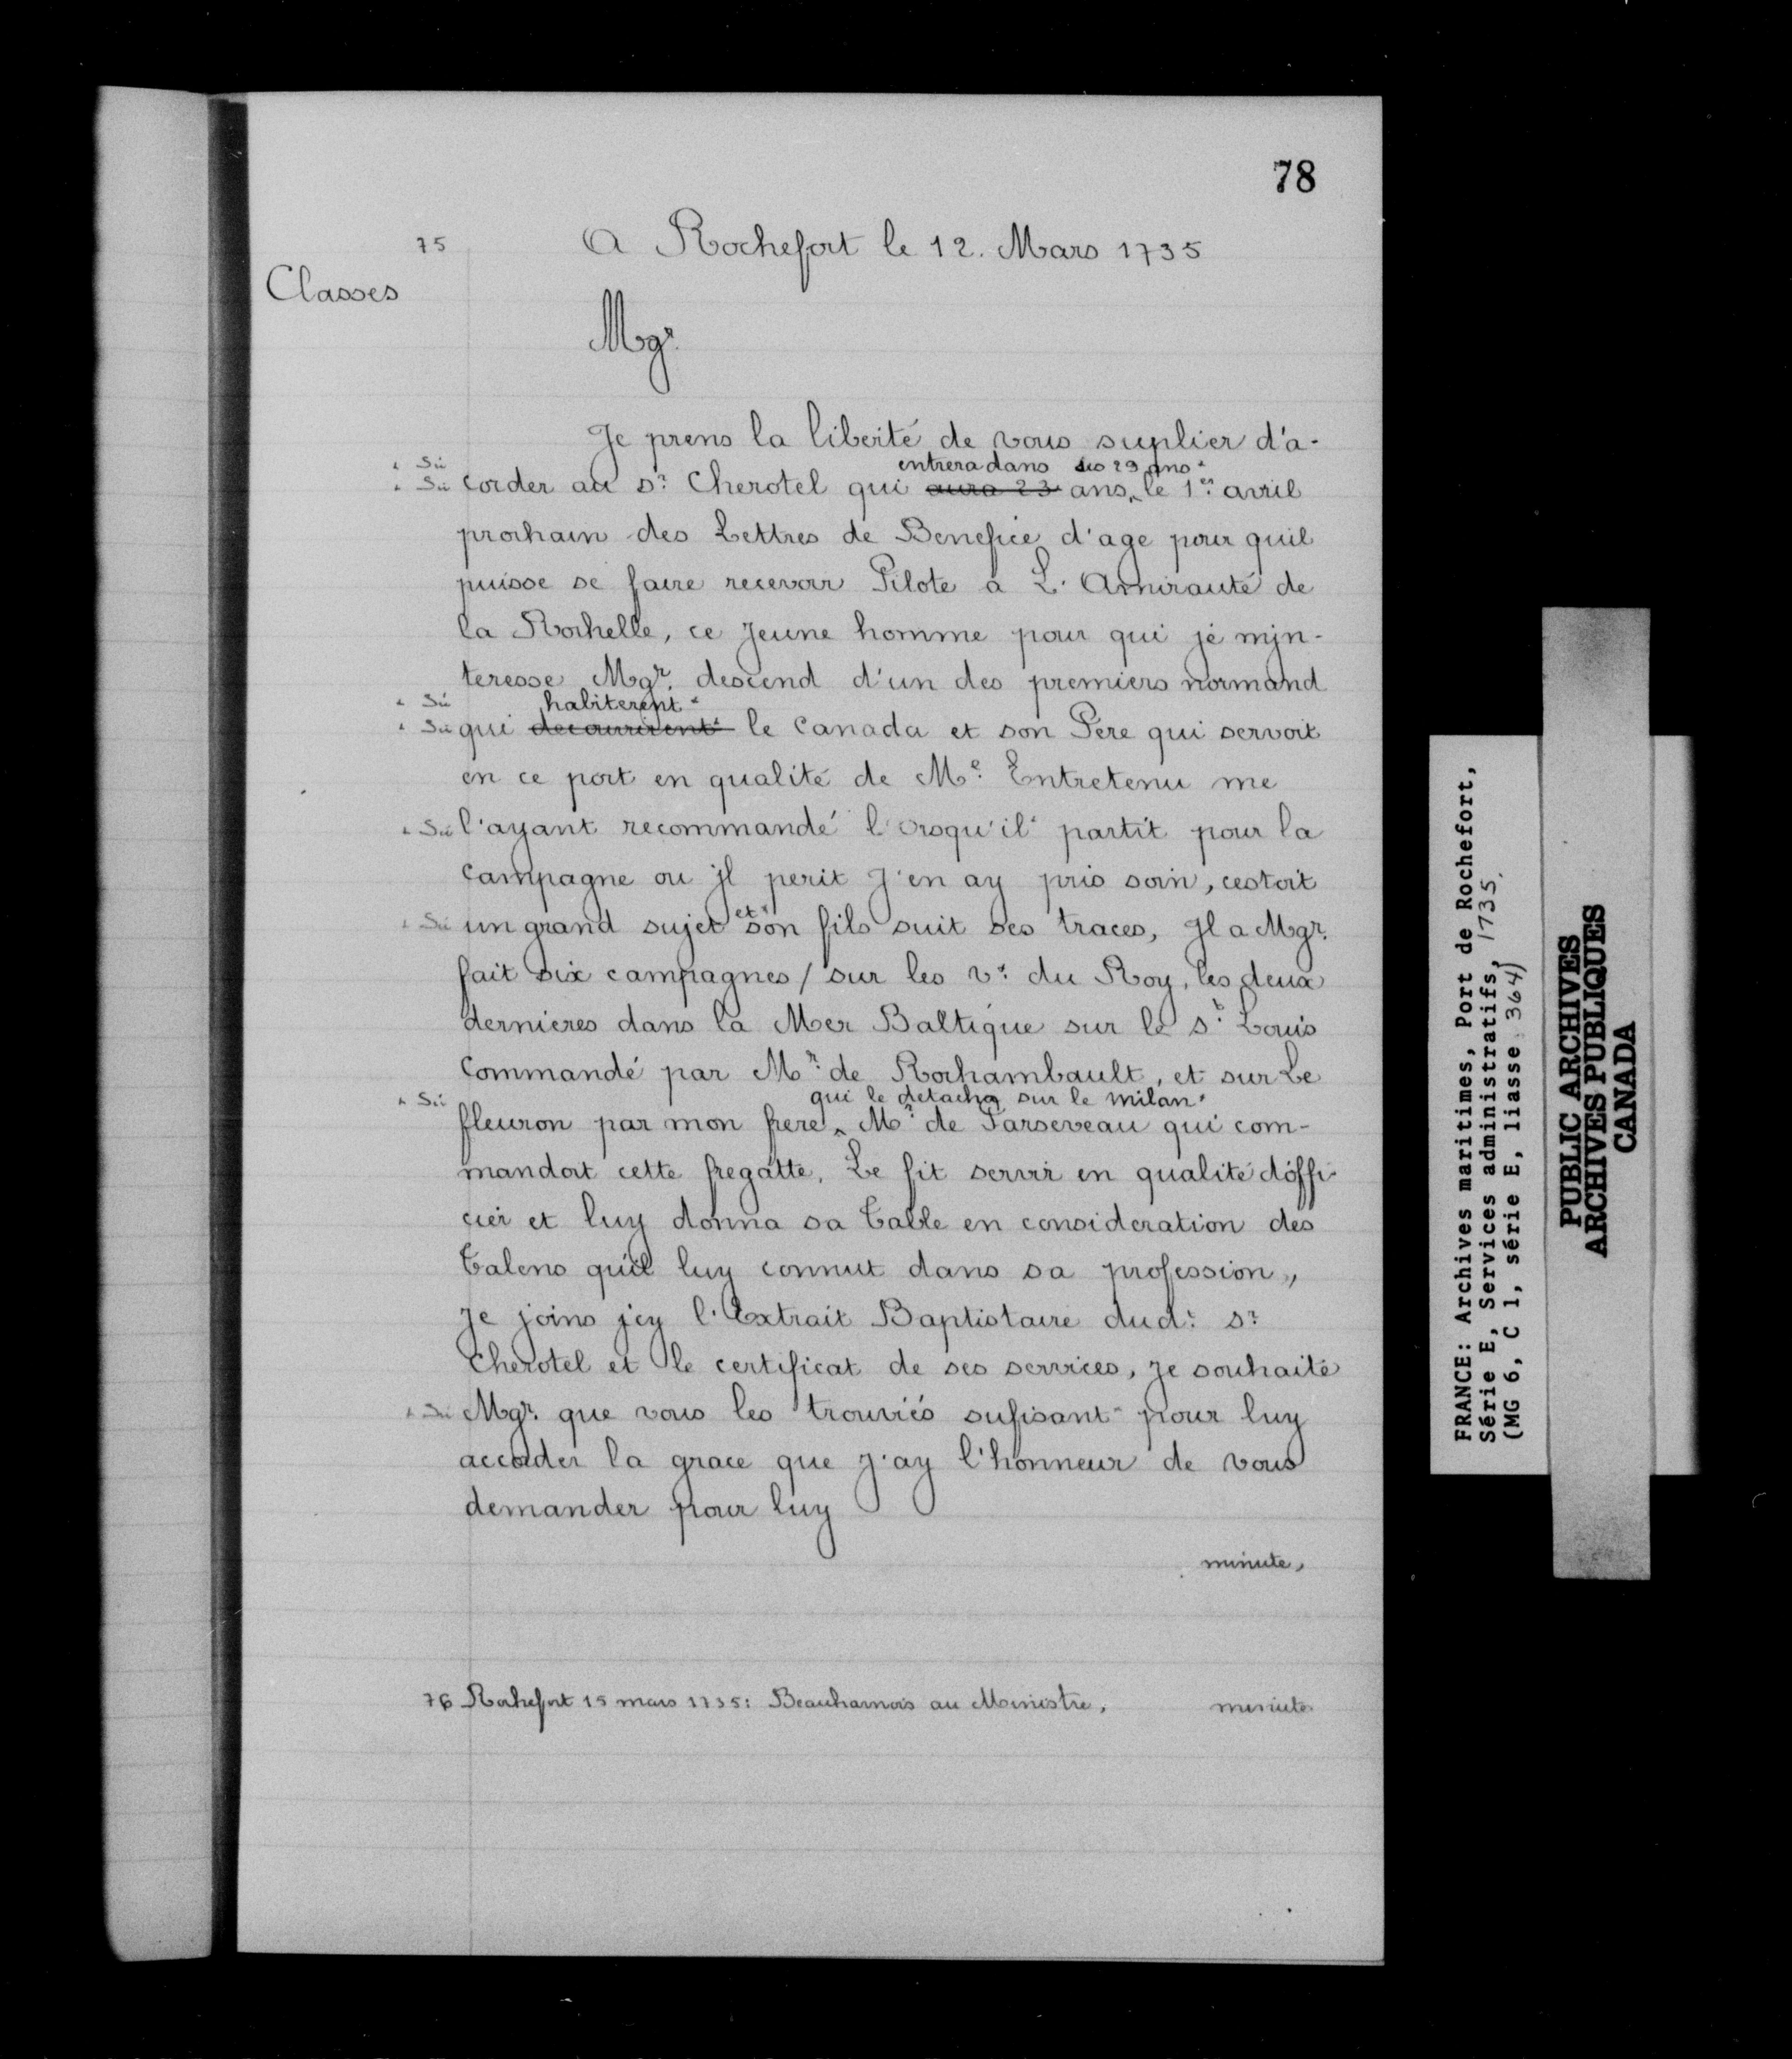 78
75 A Rochefort le 12. Mars 1735
Classes
Mgr.
Je prens la liberté de vous suplier d'a-
+ Sic entrera dans ses 29 ans +
+ Sic corder au sr. Cherotel qui aura 23 ans, le 1er avril
prochain des Lettres de Benefice d'age pour quil
puisse se faire recevoir Pilote a L'Amirauté de
la Rochelle, ce Jeune homme pour qui je mjn-
teresse Mgr. descend d'un des premiers normand
+ Sic habiterent +
+ Sic qui decouvrirent + le Canada et son Pere qui servoit
en ce port en qualité de Me. Entretenu me
+ Sic l'ayant recommandé l'orsqu'il + partit pour la
campagne ou jl perit J'en ay pris soin, cestoit
+ Sic un grand sujet et + son fils suit ses traces, Jl a Mgr.
fait six campagnes / sur les vx. du Roy, les deux
dernieres dans la Mer Baltique sur le st. Louis
commandé par Mr. de Rochambault, et sur Le
+ Sic qui le detacha sur le milan +
fleuron par mon frere, Mr. de Parseveau qui com-
mandoit cette fregatte, Le fit servir en qualité d'offi-
cier et luy donna sa Table en consideration des
Talens qu'il luy connut dans sa profession,,
Je joins jcy l'Extrait Baptistaire dud: sr.
Cherotel et le certificat de ses services, Je souhaite
+ Sic Mgr. que vous les trouviés sufisant + pour luy
accorder la grace que J'ay l'honneur de vous
demander pour luy
minute,
76 Rochefort 15 mars 1735: Beauharnois au Ministre, minute.
FRANCE: Archives maritimes, Port de Rochefort,
Série E, Services administratifs, 1735.
(MG 6, C 1, série E, liasse 364)
PUBLIC ARCHIVES
ARCHIVES PUBLIQUES
CANADA